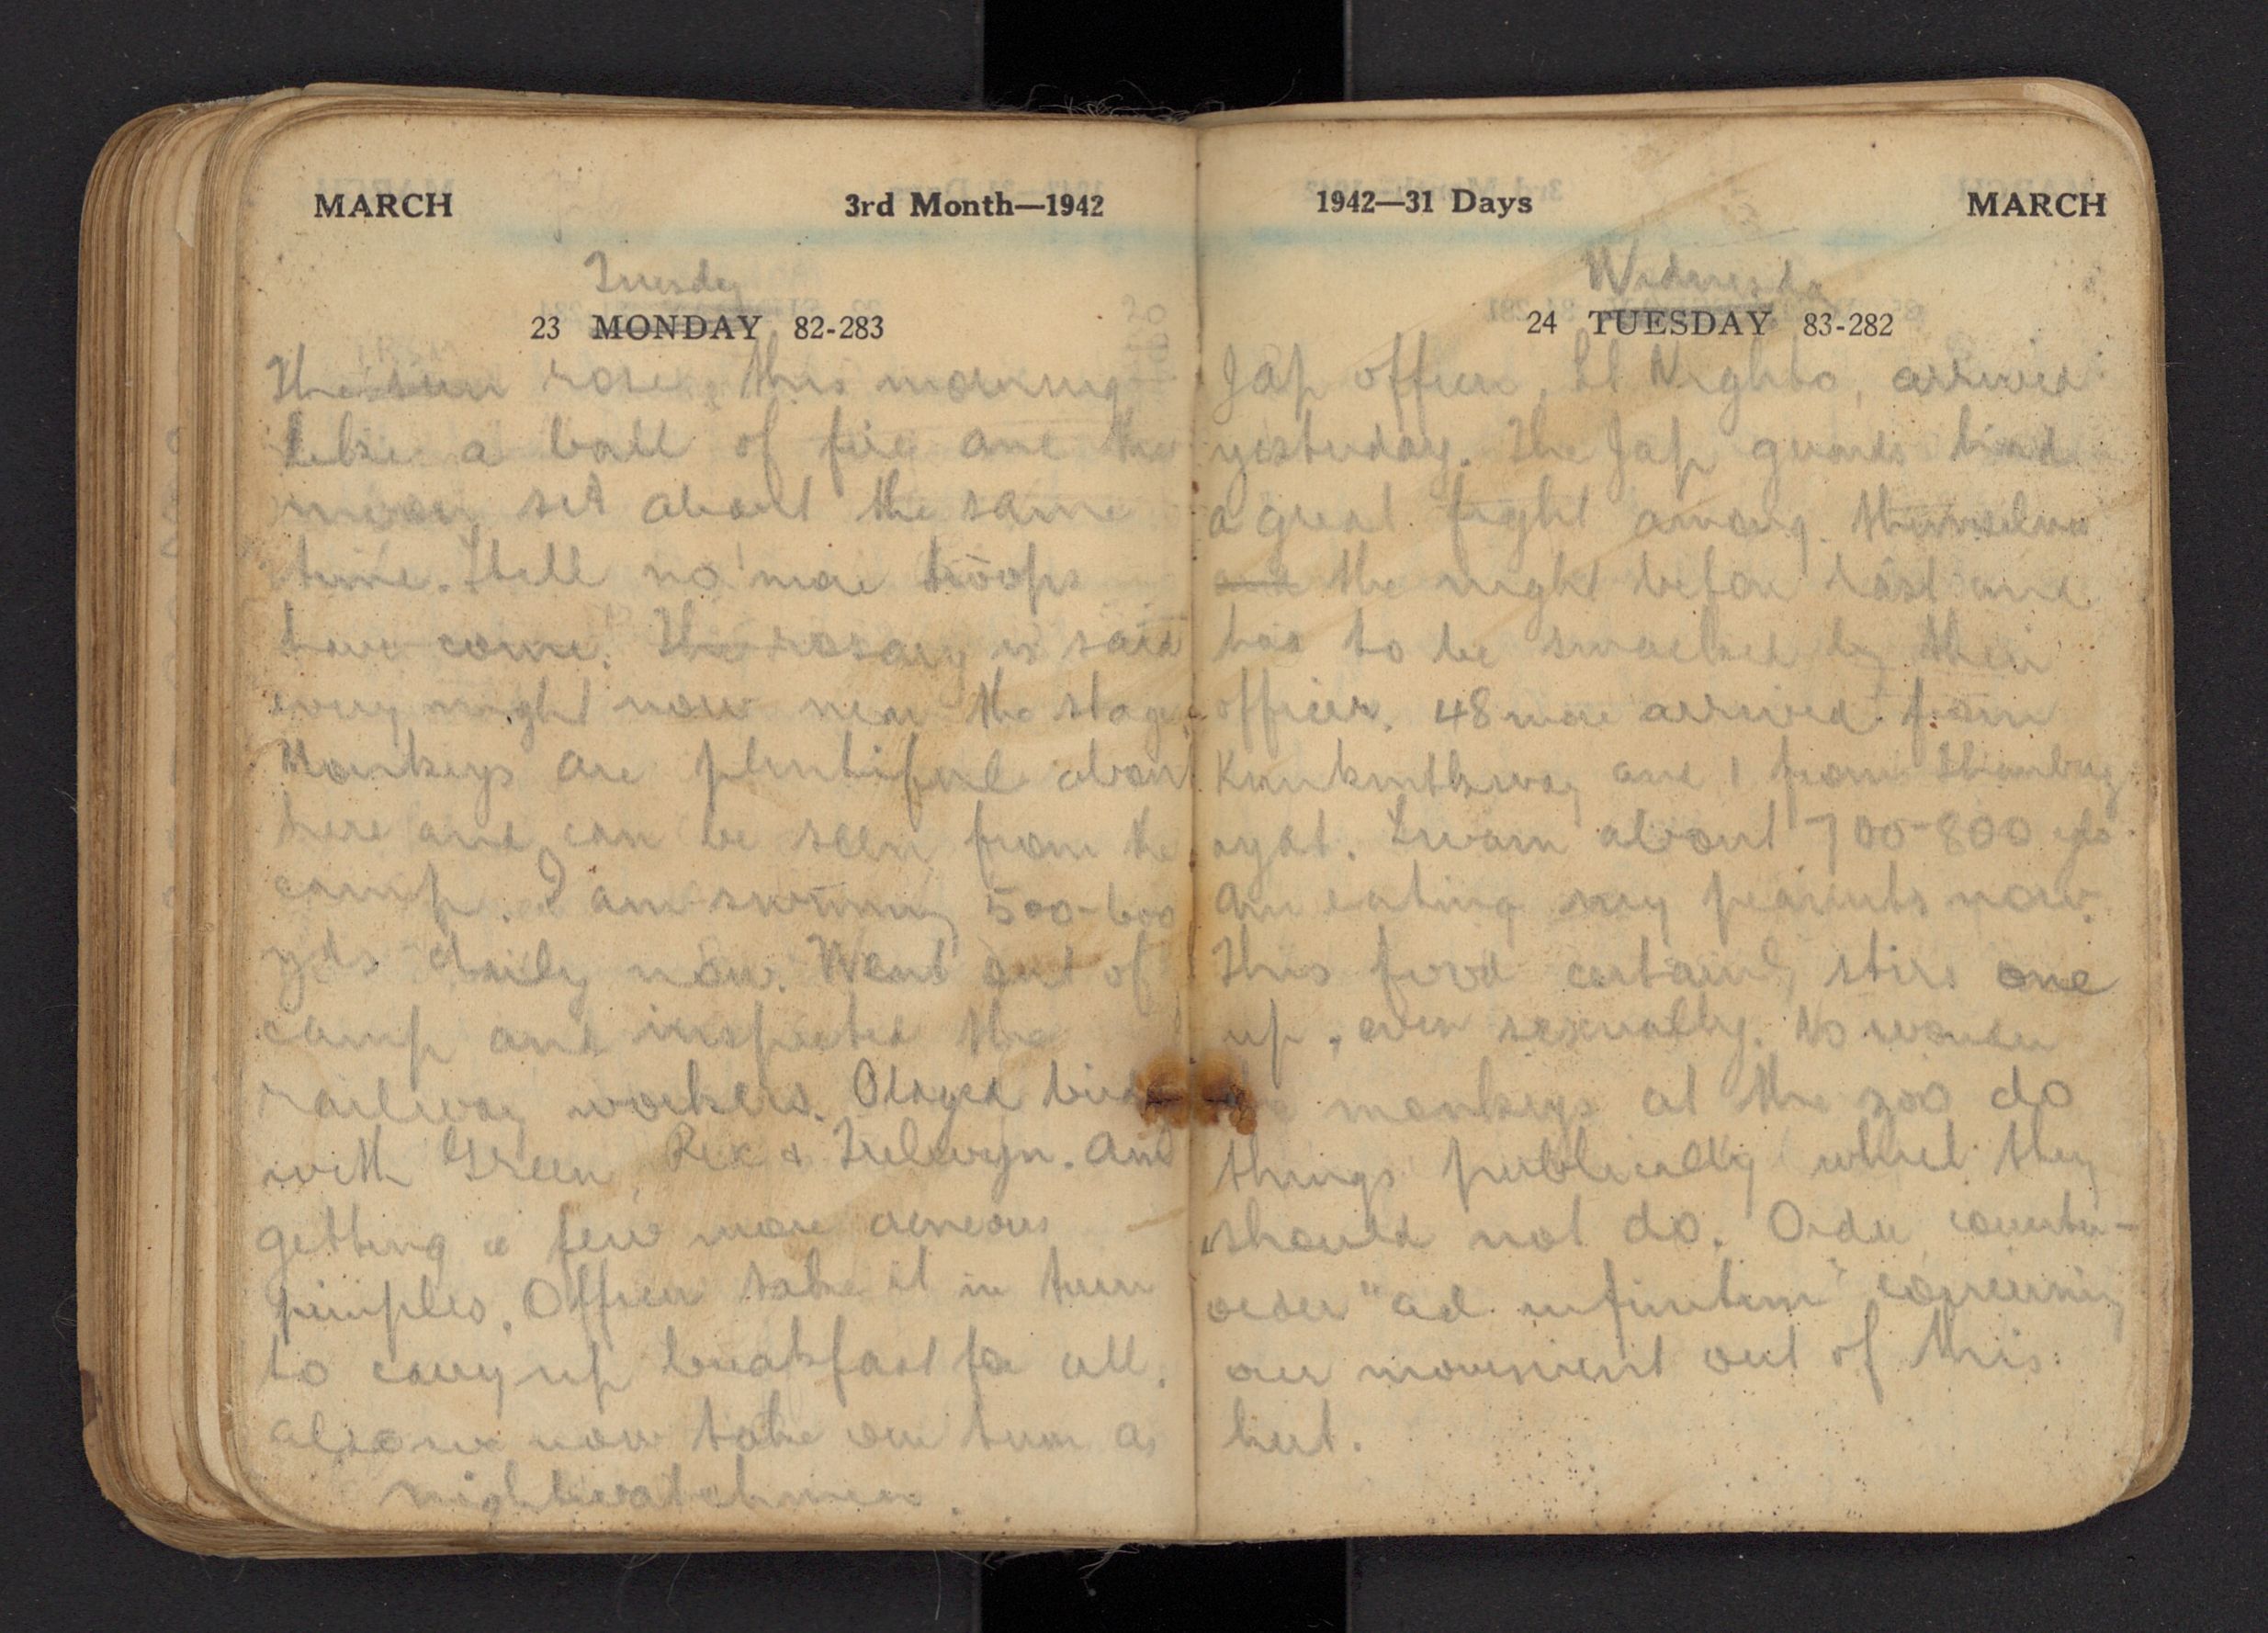 MARCH 3rd Month—1942
Tuesdy
23 MONDAY 82-283
The sun rose this morning
like a ball of fire and the
moon set about the same
time. Still no more troops
have come. The rosary is said
every night now near the stage.
Monkeys are plentiful about
here and can be seen from the
camp. I am swimming 500-600
yds daily now. Went out of
camp and inspected the
railway workers. Played bridge
with Green, Rex & Trelwyn. Am
getting a few more acneous
pimples. Officers take it in turn
to carry up breakfast for all.
also we now take our turn as
nightwatchmen.
1942—31 Days MARCH
Wednesda
24 TUESDAY 83-282
Jap officer, Lt Naghto, arrived
yesterday. The Jap guards had
a great fight among themselves
and the night before last and
had to be smacked by their
officer. 48 more arrived from
Kunknitkway and 1 from Thanbuz
ayat. Swam about 700-800 yds
Am eating my peanuts now.
This food certainly stirs one
up, even sexually. No wonder
the monkeys at the zoo do
things publically which they
should not do. Order, counter-
order "ad infinitim" concerning
our movement out of this
hut.